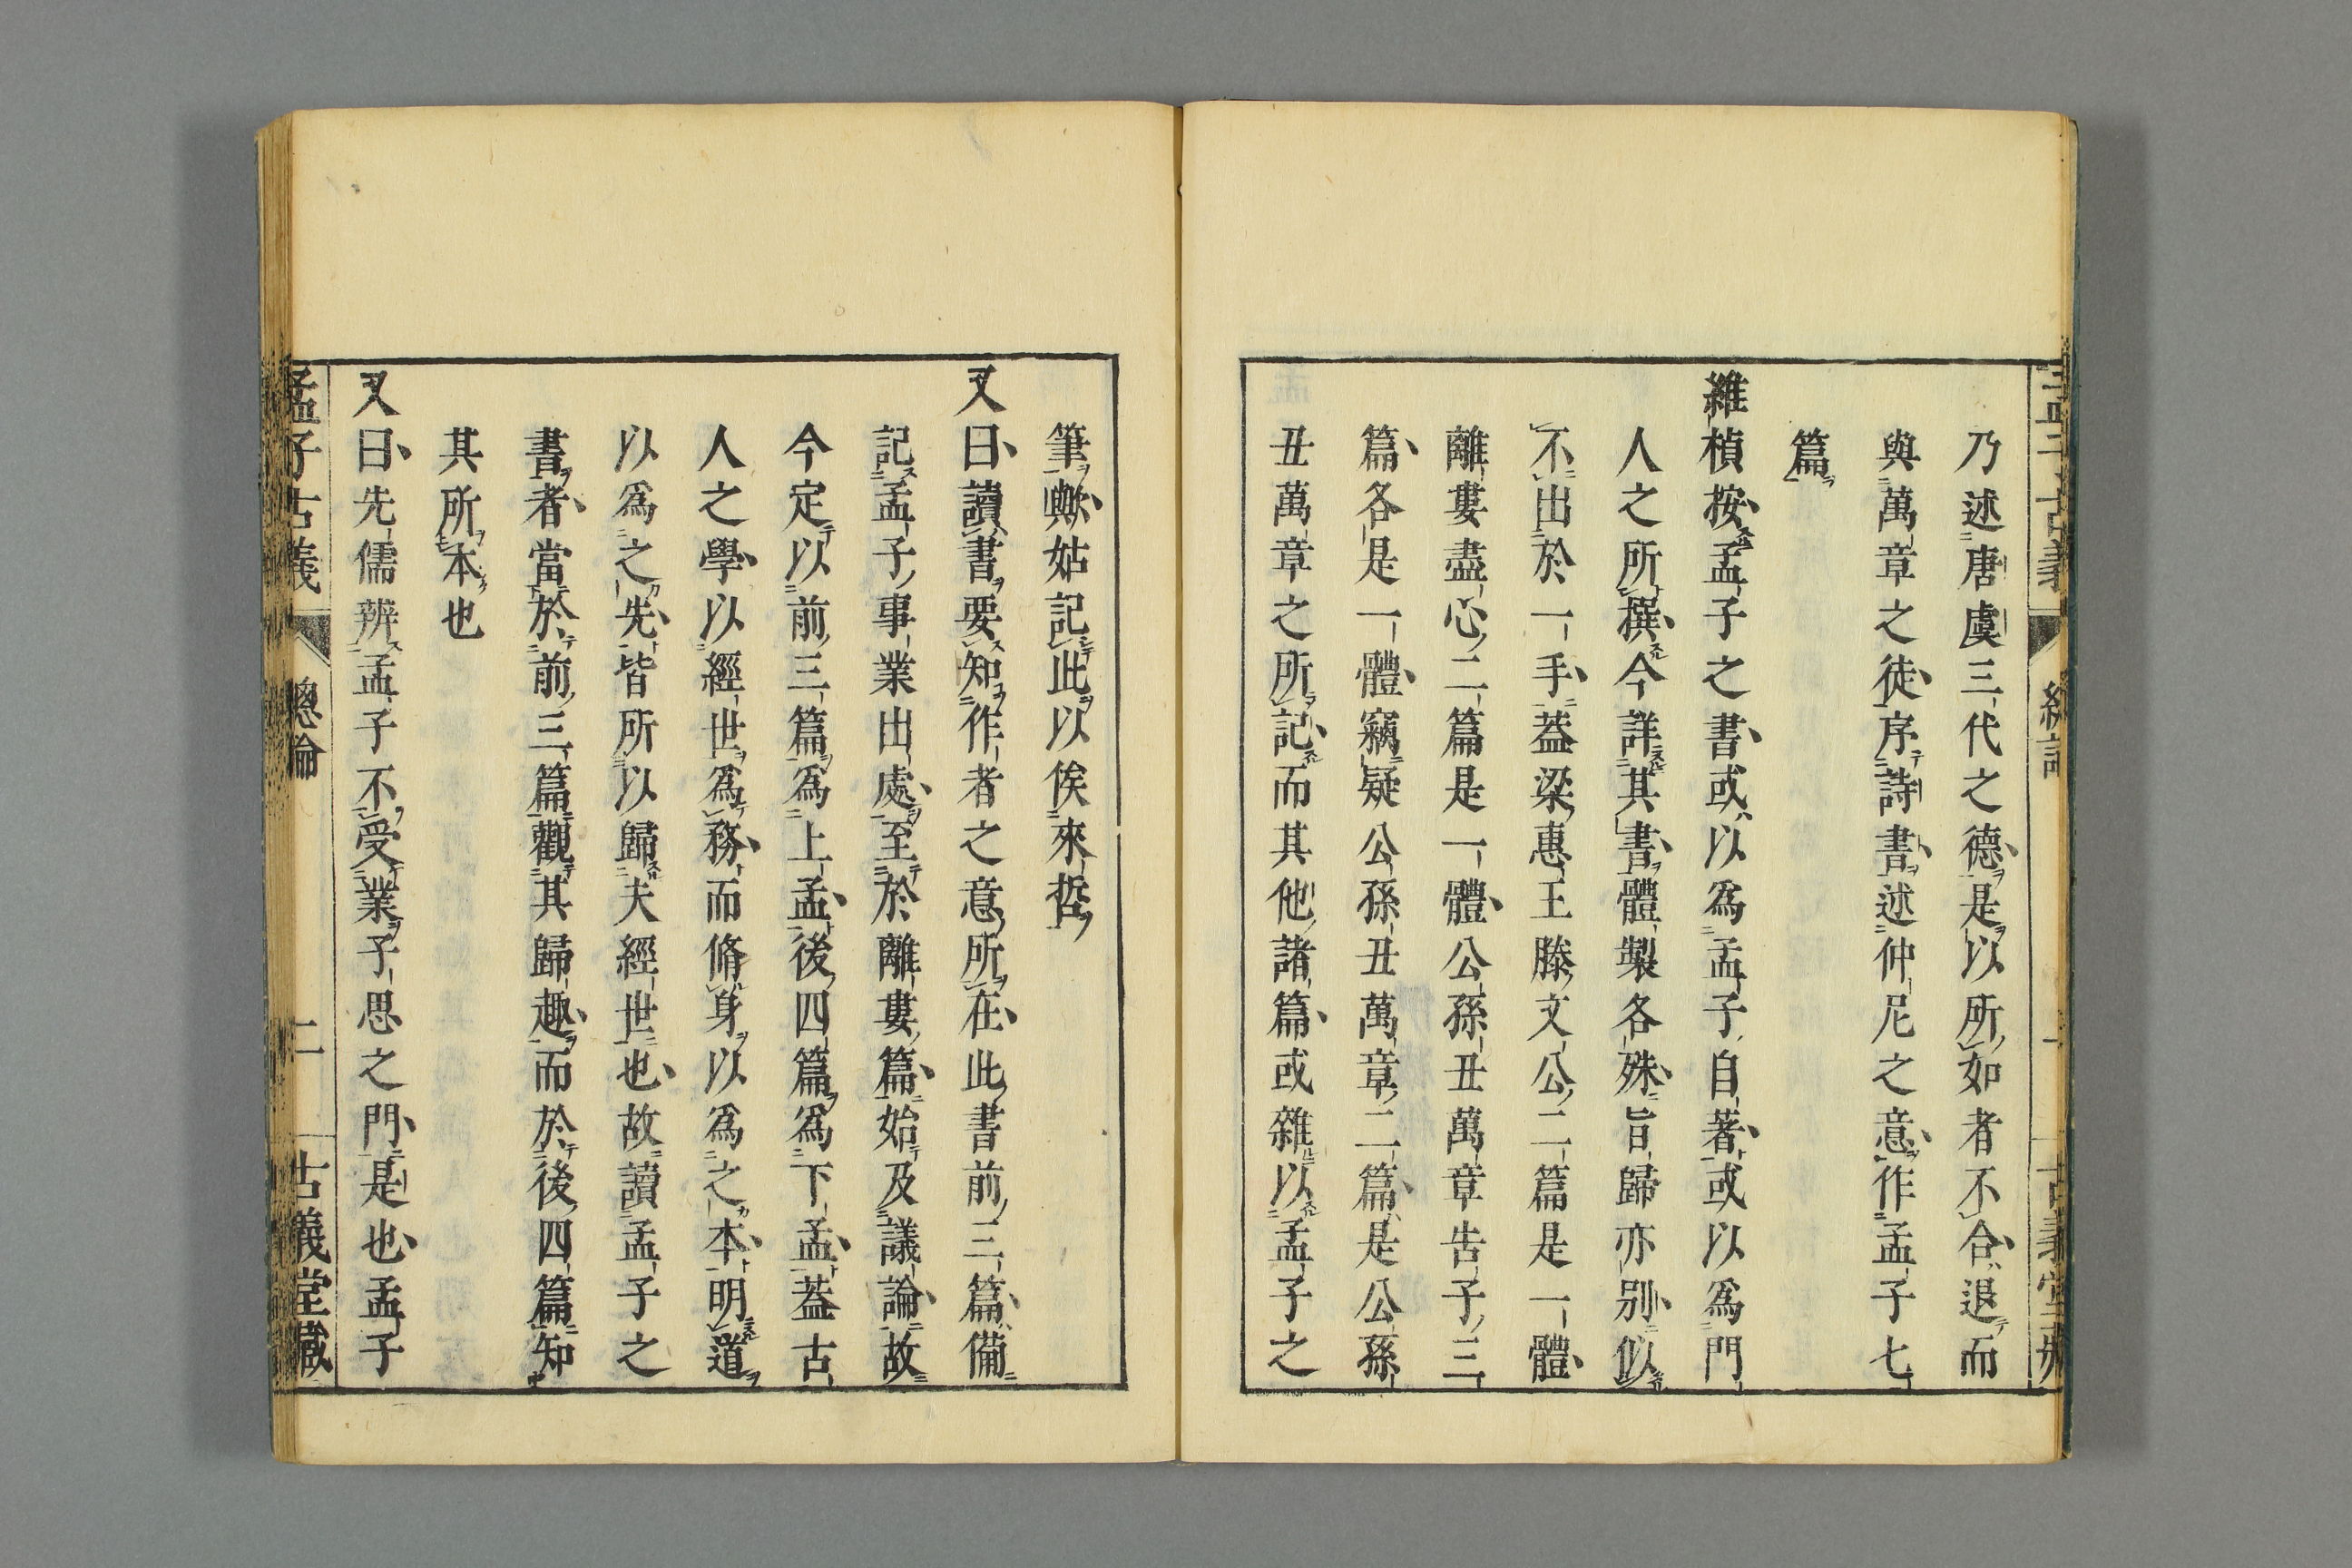 乃述唐虞三代之德是以所如者不合退而
與萬章之徒序詩書述仲尼之意作孟子七
篇
維楨按孟子之書或以爲孟子自著或以爲門
人之所撰今詳其書體製各殊旨歸亦別似
不出於一手蓋梁惠王滕文公二篇是一體
離婁盡心二篇是一體公孫丑萬章告子三
篇各是一體竊疑公孫丑萬章二篇是公孫
丑萬章之所記而其他諸篇或雜以孟子之
筆歟姑記此以俟來哲
又曰讀書要知作者之意所在此書前三篇備
記孟子事業出處至於離婁篇始及議論故
今定以前三篇爲上孟後四篇爲下孟蓋古
人之學以經世爲務而脩身以爲之本明道
以爲之先皆所以歸夫經世也故讀孟子之
書者當於前三篇觀其歸趣而於後四篇知
其所本也
又曰先儒辨孟子不受業子思之門是也孟子
孟子古義 總論 二 古義堂藏